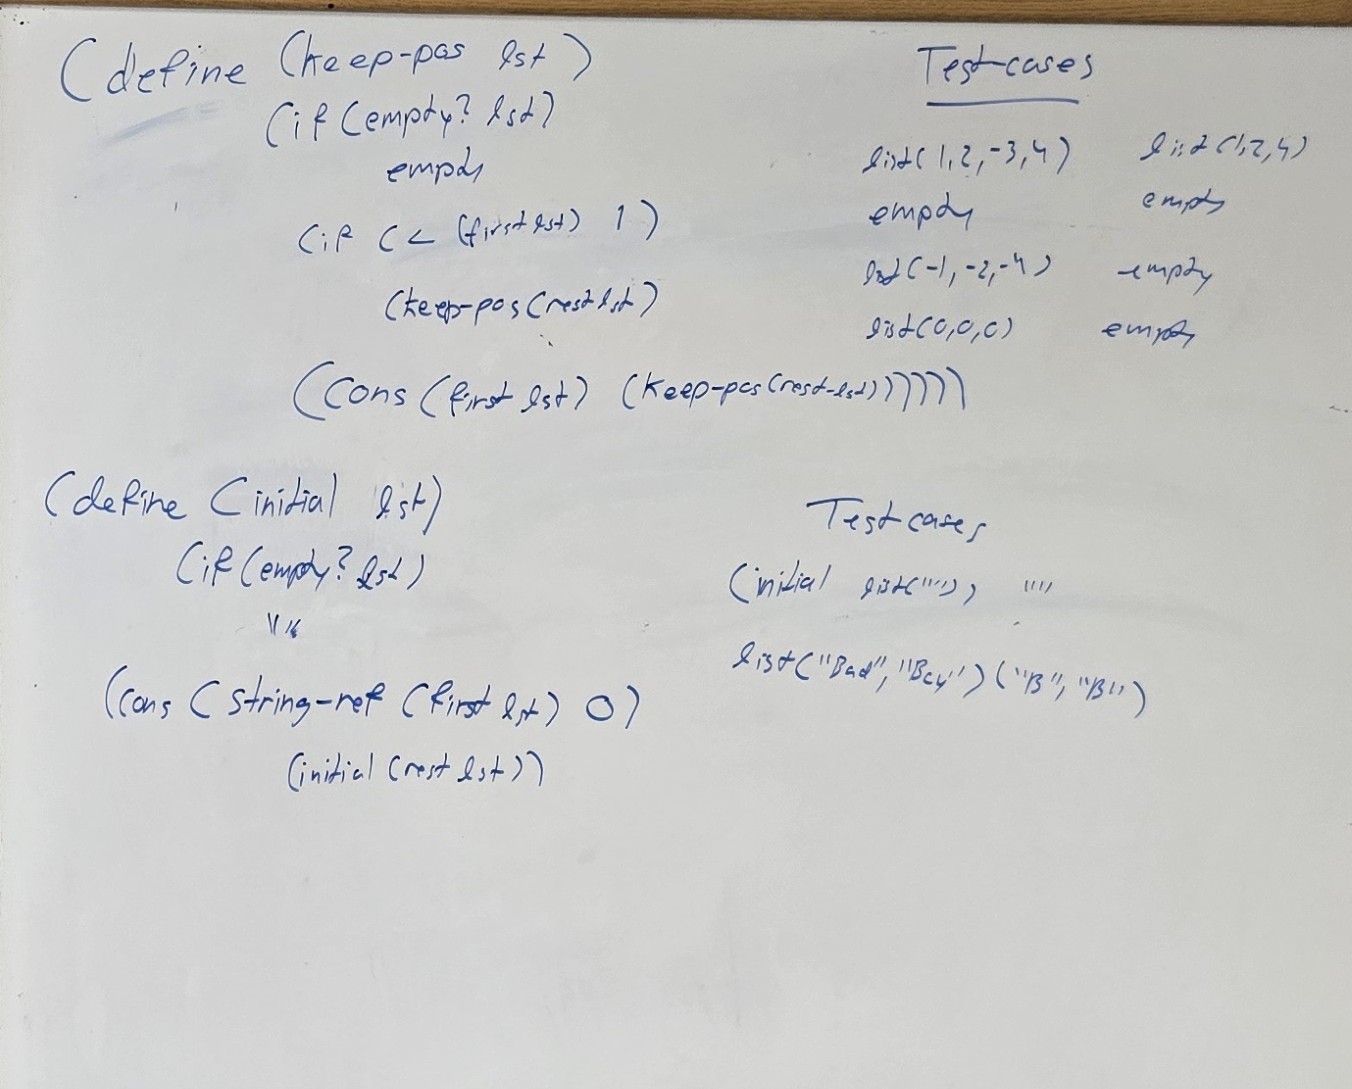 (define (keep-pos lst)
(if (empty? lst)
empty
(if (< (first lst) 1)
(keep-pos (rest lst)
(cons (first lst) (keep-pos (rest-lst))))))
Test cases
list(1,2,-3,4) list(1,2,4)
empty empty
list(-1,-2,-4) empty
list(0,0,0) empty
(define (initial lst)
(if (empty? lst)
""
(cons (string-ref (first lst) 0)
(initial (rest lst))
Test cases
(initial list(""), ""
list("Bad", "Boy") ("B", "B")